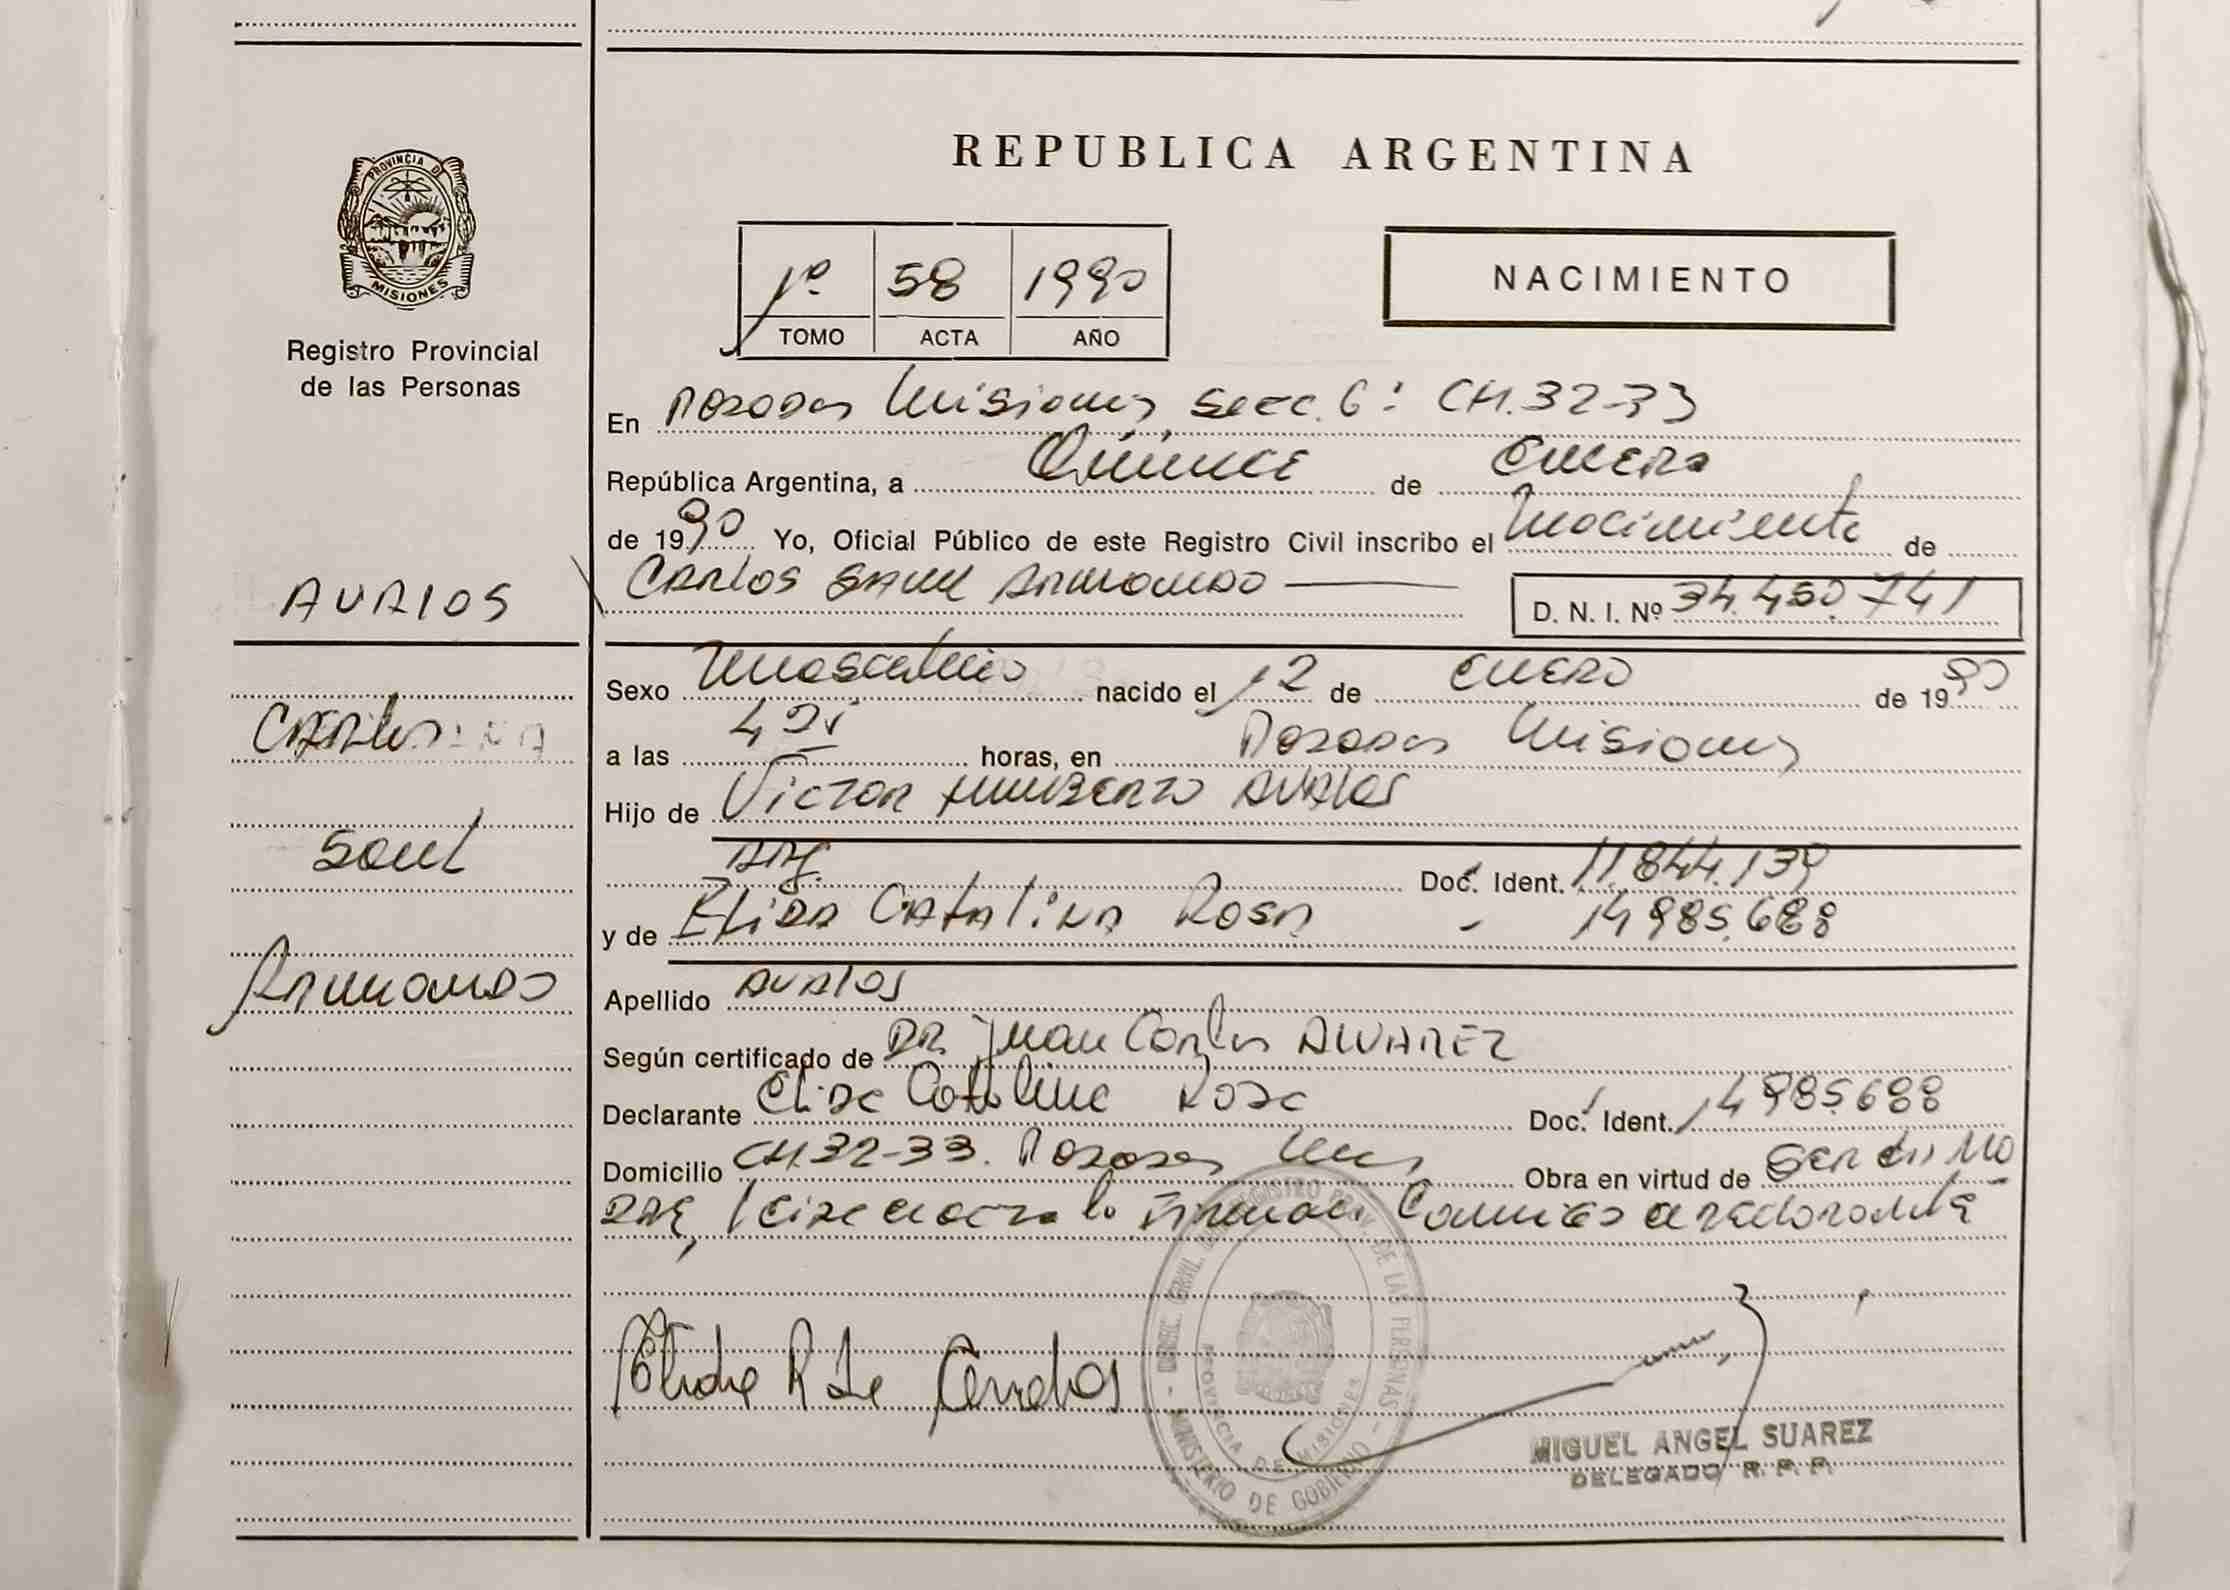 REPUBLICA ARGENTINA
PROVINCIA DE
MISIONES
Registro Provincial
de las Personas
1º 58 1990
TOMO ACTA AÑO
NACIMIENTO
En Posadas Misiones, Secc. 6ª CH.32-33
República Argentina, a Quince de Enero
de 1990 Yo, Oficial Público de este Registro Civil inscribo el Nacimiento de
Carlos Saul Armando
D. N. I. Nº 34.450.741
AVALOS
Carlos
Saul
Armando
Sexo Masculino nacido el 12 de Enero de 1990
a las 4 horas, en Posadas Misiones
Hijo de Victor Humberto Avalos
Arg. Doc. Ident. 11.844.139
y de Elida Catalina Rosa - 14.985.688
Apellido Avalos
Según certificado de DR. Juan Carlos ALVAREZ
Declarante Elida Catalina Rosa Doc. Ident. 14.985.688
Domicilio CH.32-33. Posadas Mnes Obra en virtud de ser
la
Elida R de Avalos
DIREC. GRAL. DEL REGISTRO PROV. DE LAS PERSONAS - MINISTERIO DE GOBIERNO -
PROVINCIA DE MISIONES
MIGUEL ANGEL SUAREZ
DELEGADO R. P. P.